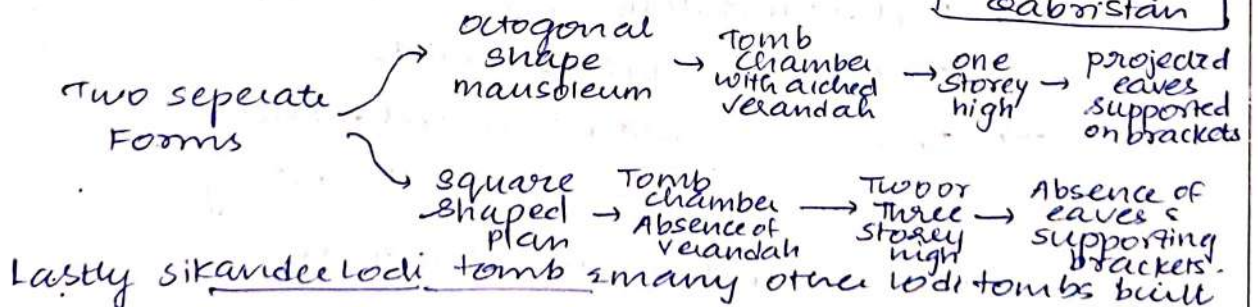 Qabristan
Two seperate
Forms
Octogonal
shape
mausoleum
→ Tomb
chamber
with arched
verandah
→ one
storey
high
→ projected
eaves
supported
on brackets
square
shaped
plan
→ Tomb
chamber
Absence of
verandah
→ Two or
Three
storey
high
→ Absence of
eaves &
supporting
brackets.
Lastly sikander Lodi tomb & many other lodi tombs built